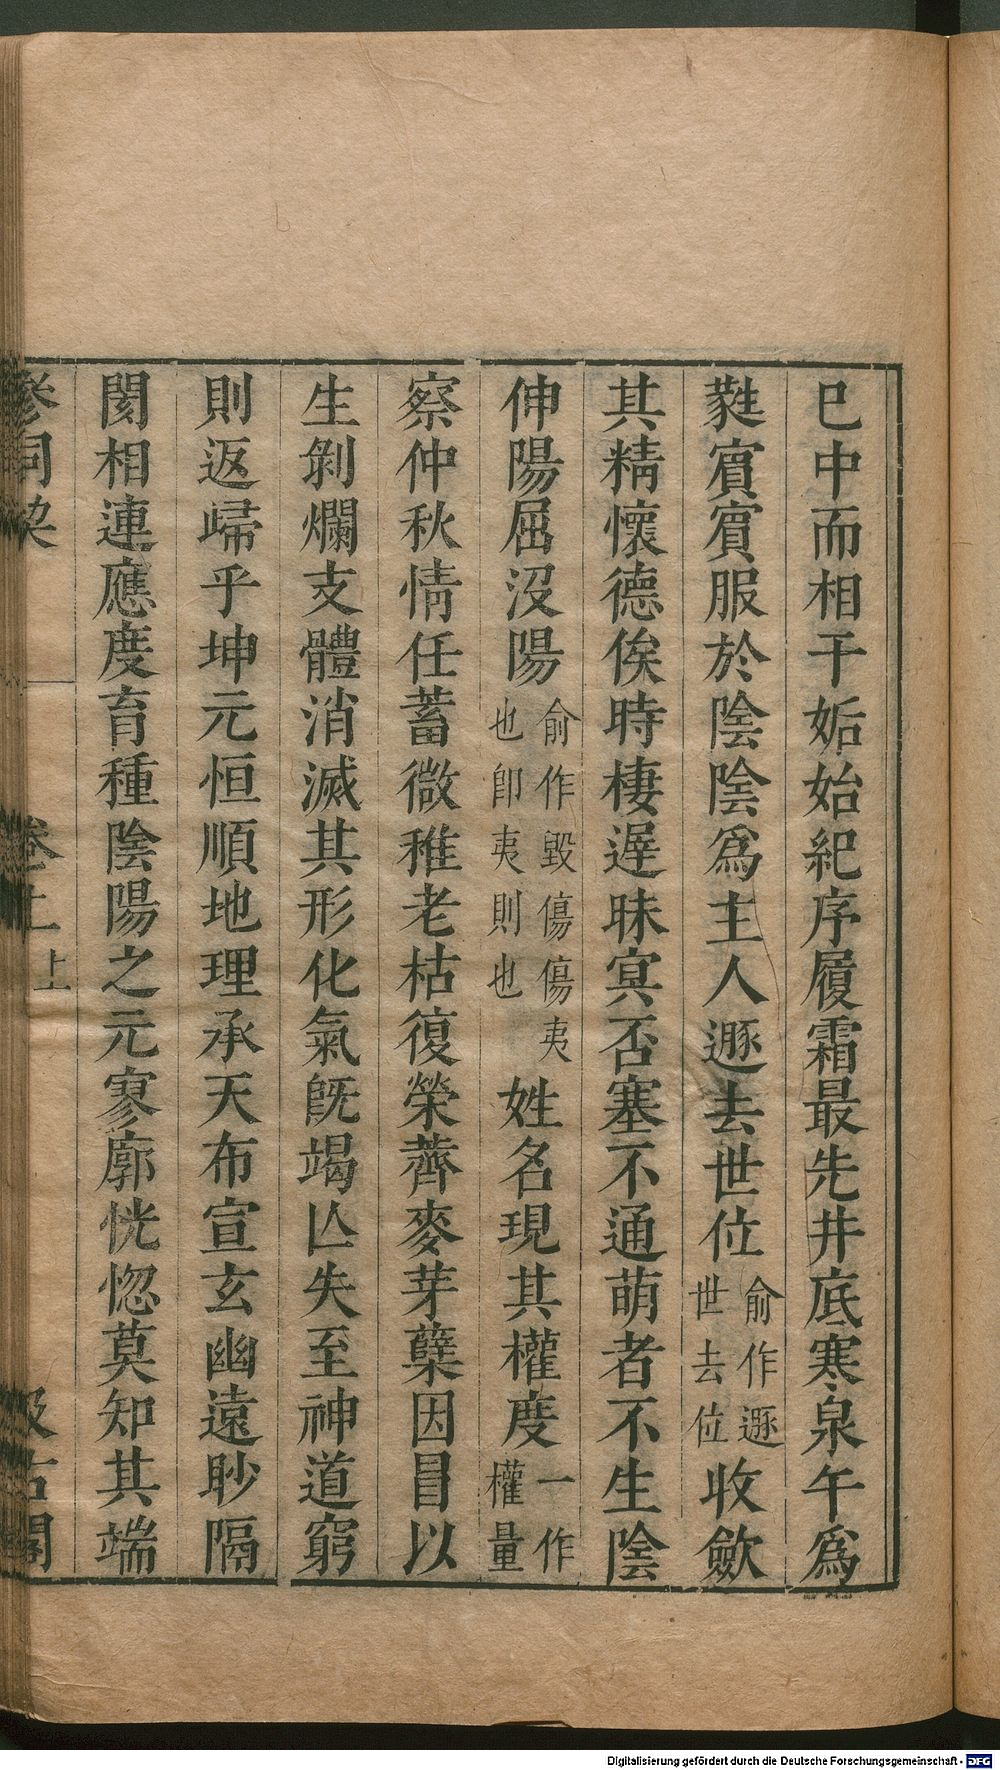 巳中而相干姤始紀序履霜最先井底寒泉午爲
蕤賓賓服於陰陰爲主人遯去世位俞作遯世去位收斂
其精懷德俟時棲遲昧冥否塞不通萌者不生陰
伸陽屈沒陽俞作毀傷傷夷也卽夷則也姓名現其權度一作權量
察仲秋情任蓄微稚老枯復榮薺麥芽蘖因冒以
生剝爛支體消滅其形化氣旣竭亾失至神道窮
則返歸乎坤元恒順地理承天布宣玄幽遠眇隔
閡相連應度育種陰陽之元寥廓恍惚莫知其端
參同契 卷上 上 汲古閣
Digitalisierung gefördert durch die Deutsche Forschungsgemeinschaft - DFG